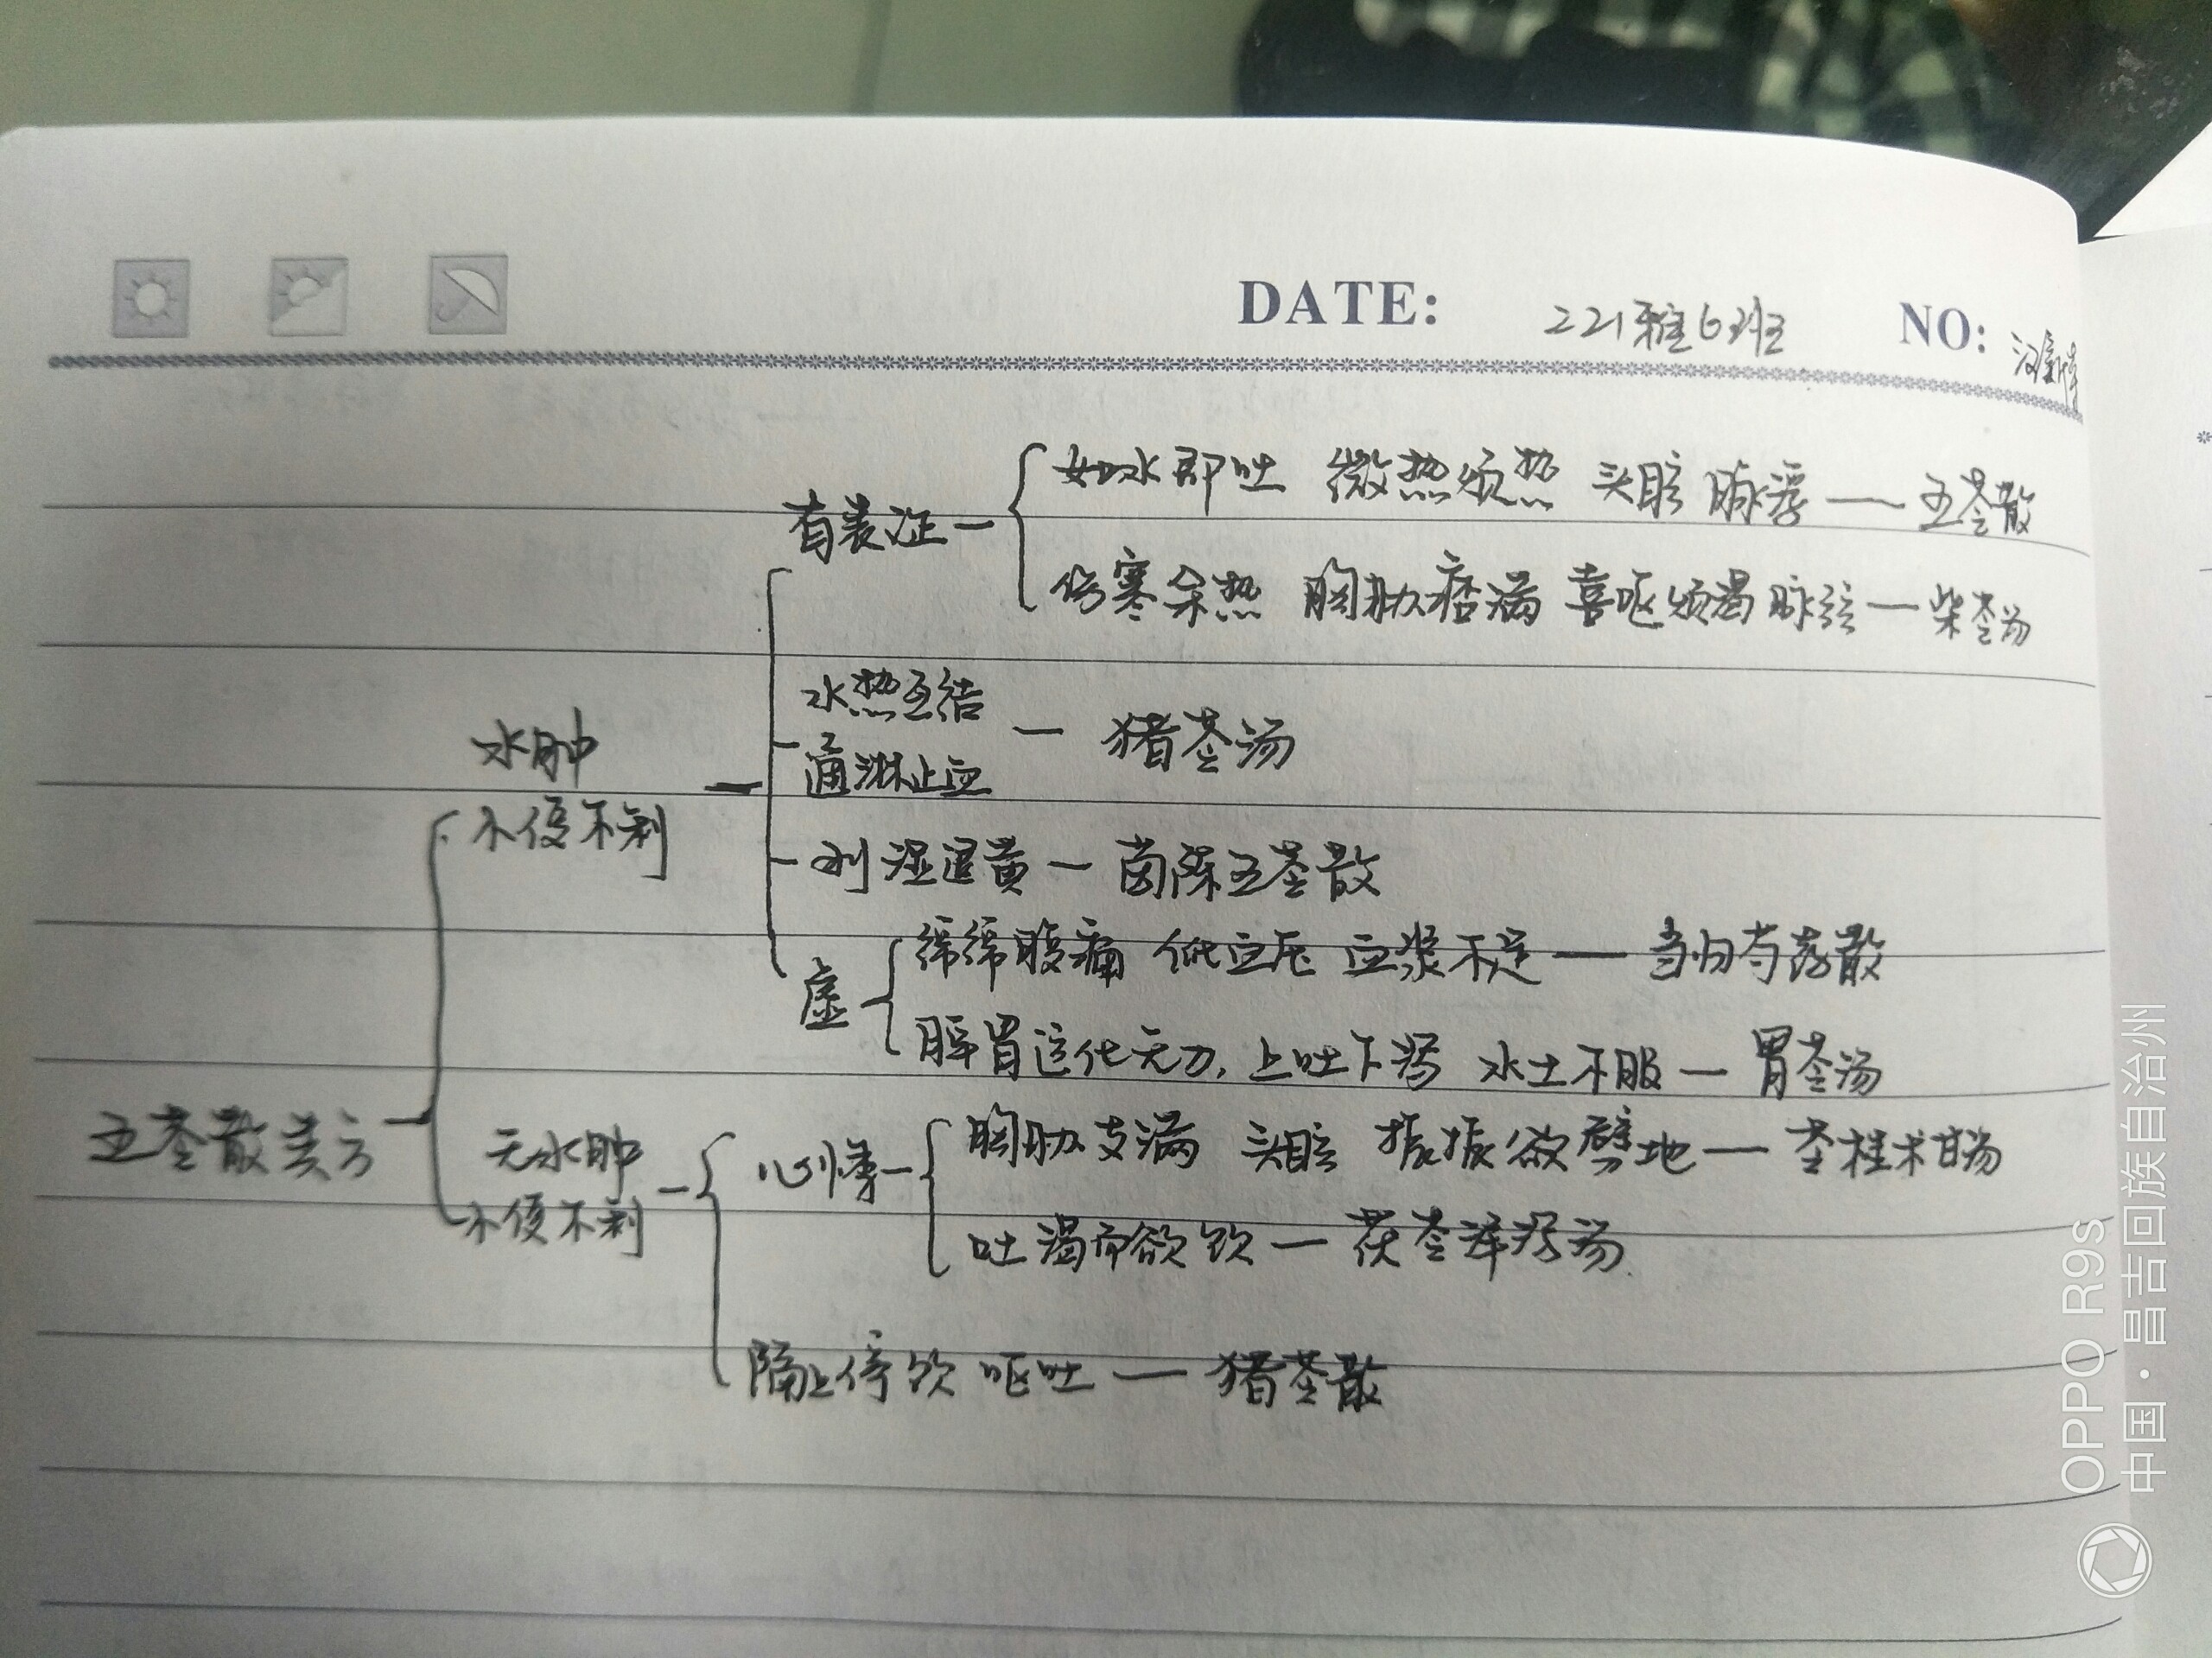 DATE: 221雅6班 NO:
有表证 如水即吐 微热烦热 头眩 脉浮 — 五苓散
伤寒余热 胸胁痞满 喜呕烦渴 脉弦 — 柴苓汤
水肿
小便不利
水热互结
通淋止血 — 猪苓汤
利湿退黄 — 茵陈五苓散
虚 绵绵腹痛 低血压 血浆不足 — 当归芍药散
脾胃运化无力,上吐下泻 水土不服 — 胃苓汤
五苓散类方
无水肿
小便不利
心悸 胸胁支满 头眩 振振欲擗地 — 苓桂术甘汤
吐渴而欲饮 — 茯苓泽泻汤
隔上停饮 呕吐 — 猪苓散
OPPO R9s
中国·昌吉回族自治州